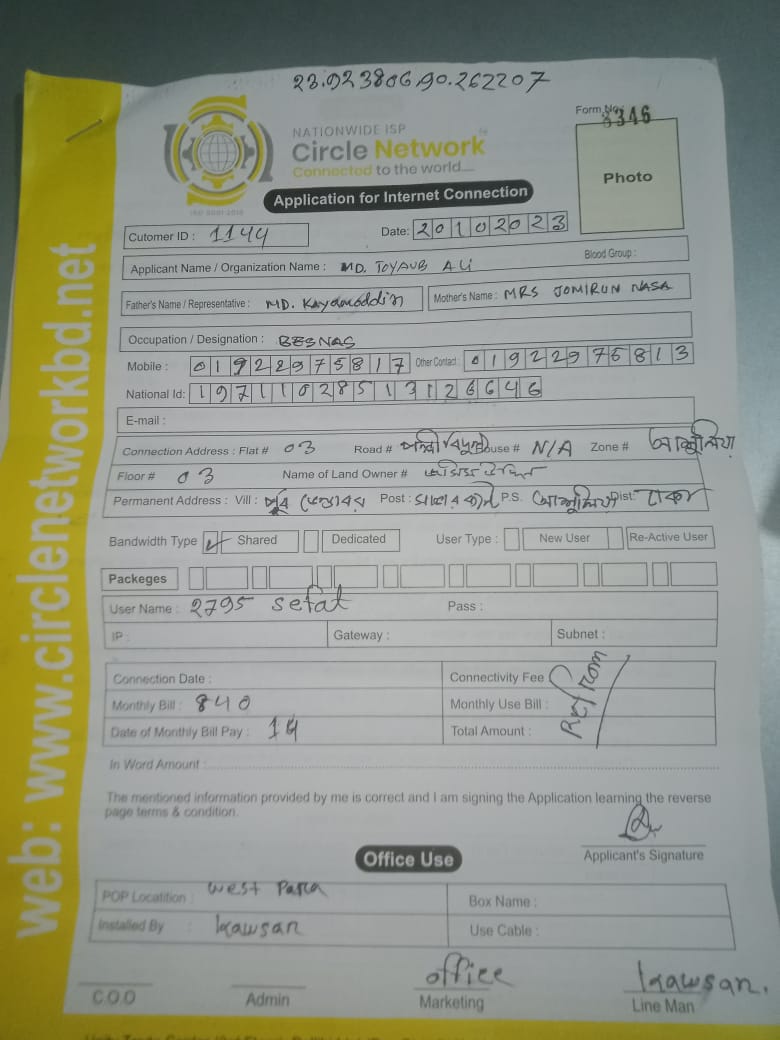 23.923806,90.262207
NATIONWIDE ISP
Circle Network
Connected to the world....
ISO 9001:2015
Form No. 8346
Photo
Application for Internet Connection
Cutomer ID : 1144 Date: 20102023
Applicant Name / Organization Name : MD. TOYAUB ALi Blood Group :
Father's Name / Representative : MD. Mother's Name : MRS JOMIRUN NASA
Occupation / Designation : BESNAS
Mobile : 01922975817 Other Contact : 01922975813
National Id: 19711028513126646
E-mail :
Connection Address : Flat # 03 Road # House # N/A Zone #
Floor # 03 Name of Land Owner #
Permanent Address : Vill : Post : P.S. Dist: ঢাকা
Bandwidth Type Shared Dedicated User Type : New User Re-Active User
Packeges
User Name : 2795 sefat Pass :
IP : Gateway : Subnet :
Connection Date : Connectivity Fee
Monthly Bill : 840 Monthly Use Bill :
Date of Monthly Bill Pay : 14 Total Amount :
In Word Amount :
The mentioned information provided by me is correct and I am signing the Application learning the reverse
page terms & condition.
Applicant's Signature
Office Use
POP Locatition : west Para Box Name :
Installed By : kawsar Use Cable :
office kawsar.
C.O.O Admin Marketing Line Man
web: www.circlenetworkbd.net